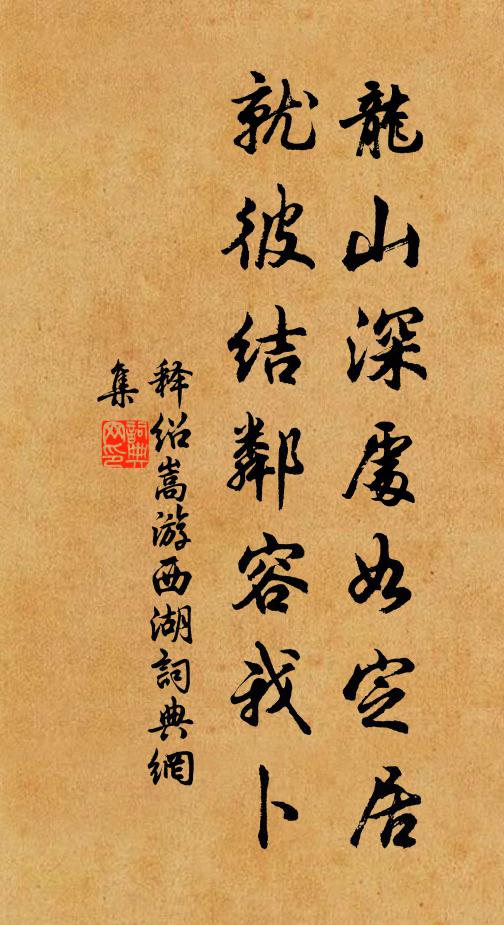 龍山深處如定居
就彼結鄰容我卜
釋紹嵩游西湖詞典網
集
詞典網印